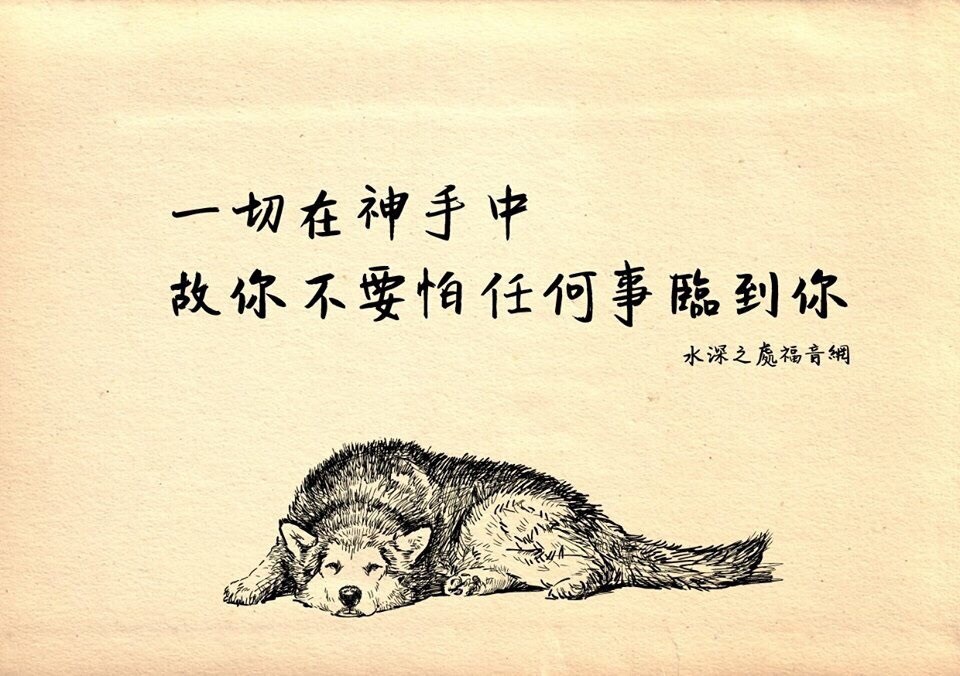 一切在神手中
故你不要怕任何事臨到你
水深之處福音網